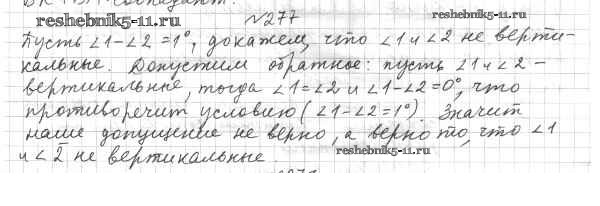 №277
reshebnik5-11.ru
Пусть ∠1-∠2=1°, докажем, что ∠1 и ∠2 не верти-
кальные. Допустим обратное: пусть ∠1 и ∠2 -
вертикальные, тогда ∠1=∠2 и ∠1-∠2=0°, что
противоречит условию (∠1-∠2=1°). Значит
наше допущение не верно, а верно то, что ∠1
и ∠2 не вертикальные.
reshebnik5-11.ru